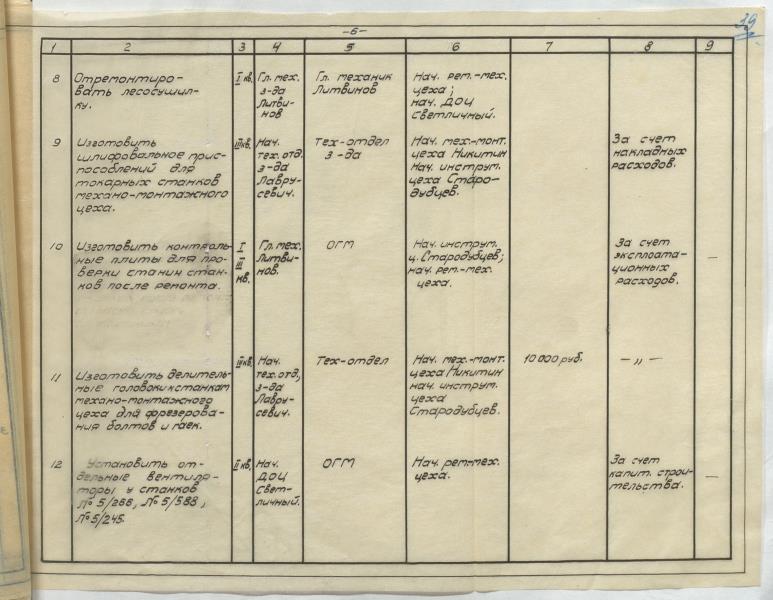 39
-6-
1 2 3 4 5 6 7 8 9
8 Отремонтиро-
вать лесосушил-
ку.
I кв.
Гл. мех.
з-да
Литви-
нов
Гл. механик
Литвинов
Нач. рем.-мех.
цеха;
нач. ДОЦ
Светличный.
9 Изготовить
шлифовальное прис-
пособлений для
токарных станков
механо-монтажного
цеха.
III кв.
Нач.
тех. отд.
з-да
Лавру-
севич.
Тех-отдел
з-да
Нач. мех.-монт.
цеха Никитин
Нач. инструм.
цеха Старо-
дубцев.
За счет
накладных
расходов.
10 Изготовить контроль-
ные плиты для про-
верки станин стан-
ков после ремонта.
I
III
кв.
Гл. мех.
Литви-
нов.
ОГМ
Нач. инструм.
ц. Стародубцев;
нач. рем.-мех.
цеха.
За счет
эксплоата-
ционных
расходов.
—
11 Изготовить делитель-
ные головки к станкам
механо-монтажного
цеха для фрезерова-
ния болтов и гаек.
III кв.
Нач.
тех. отд,
з-да
Лавру-
севич.
Тех-отдел
Нач. мех.-монт.
цеха Никитин
нач. инструм.
цеха
Стародубцев.
10 000 руб.
— „ —
12 Установить от-
дельные вентиля-
торы у станков
№ 5/266, № 5/588,
№ 5/245.
II кв.
Нач.
ДОЦ
Свет-
личный.
ОГМ
Нач. рем-мех.
цеха.
За счет
капит. строи-
тельства.
—